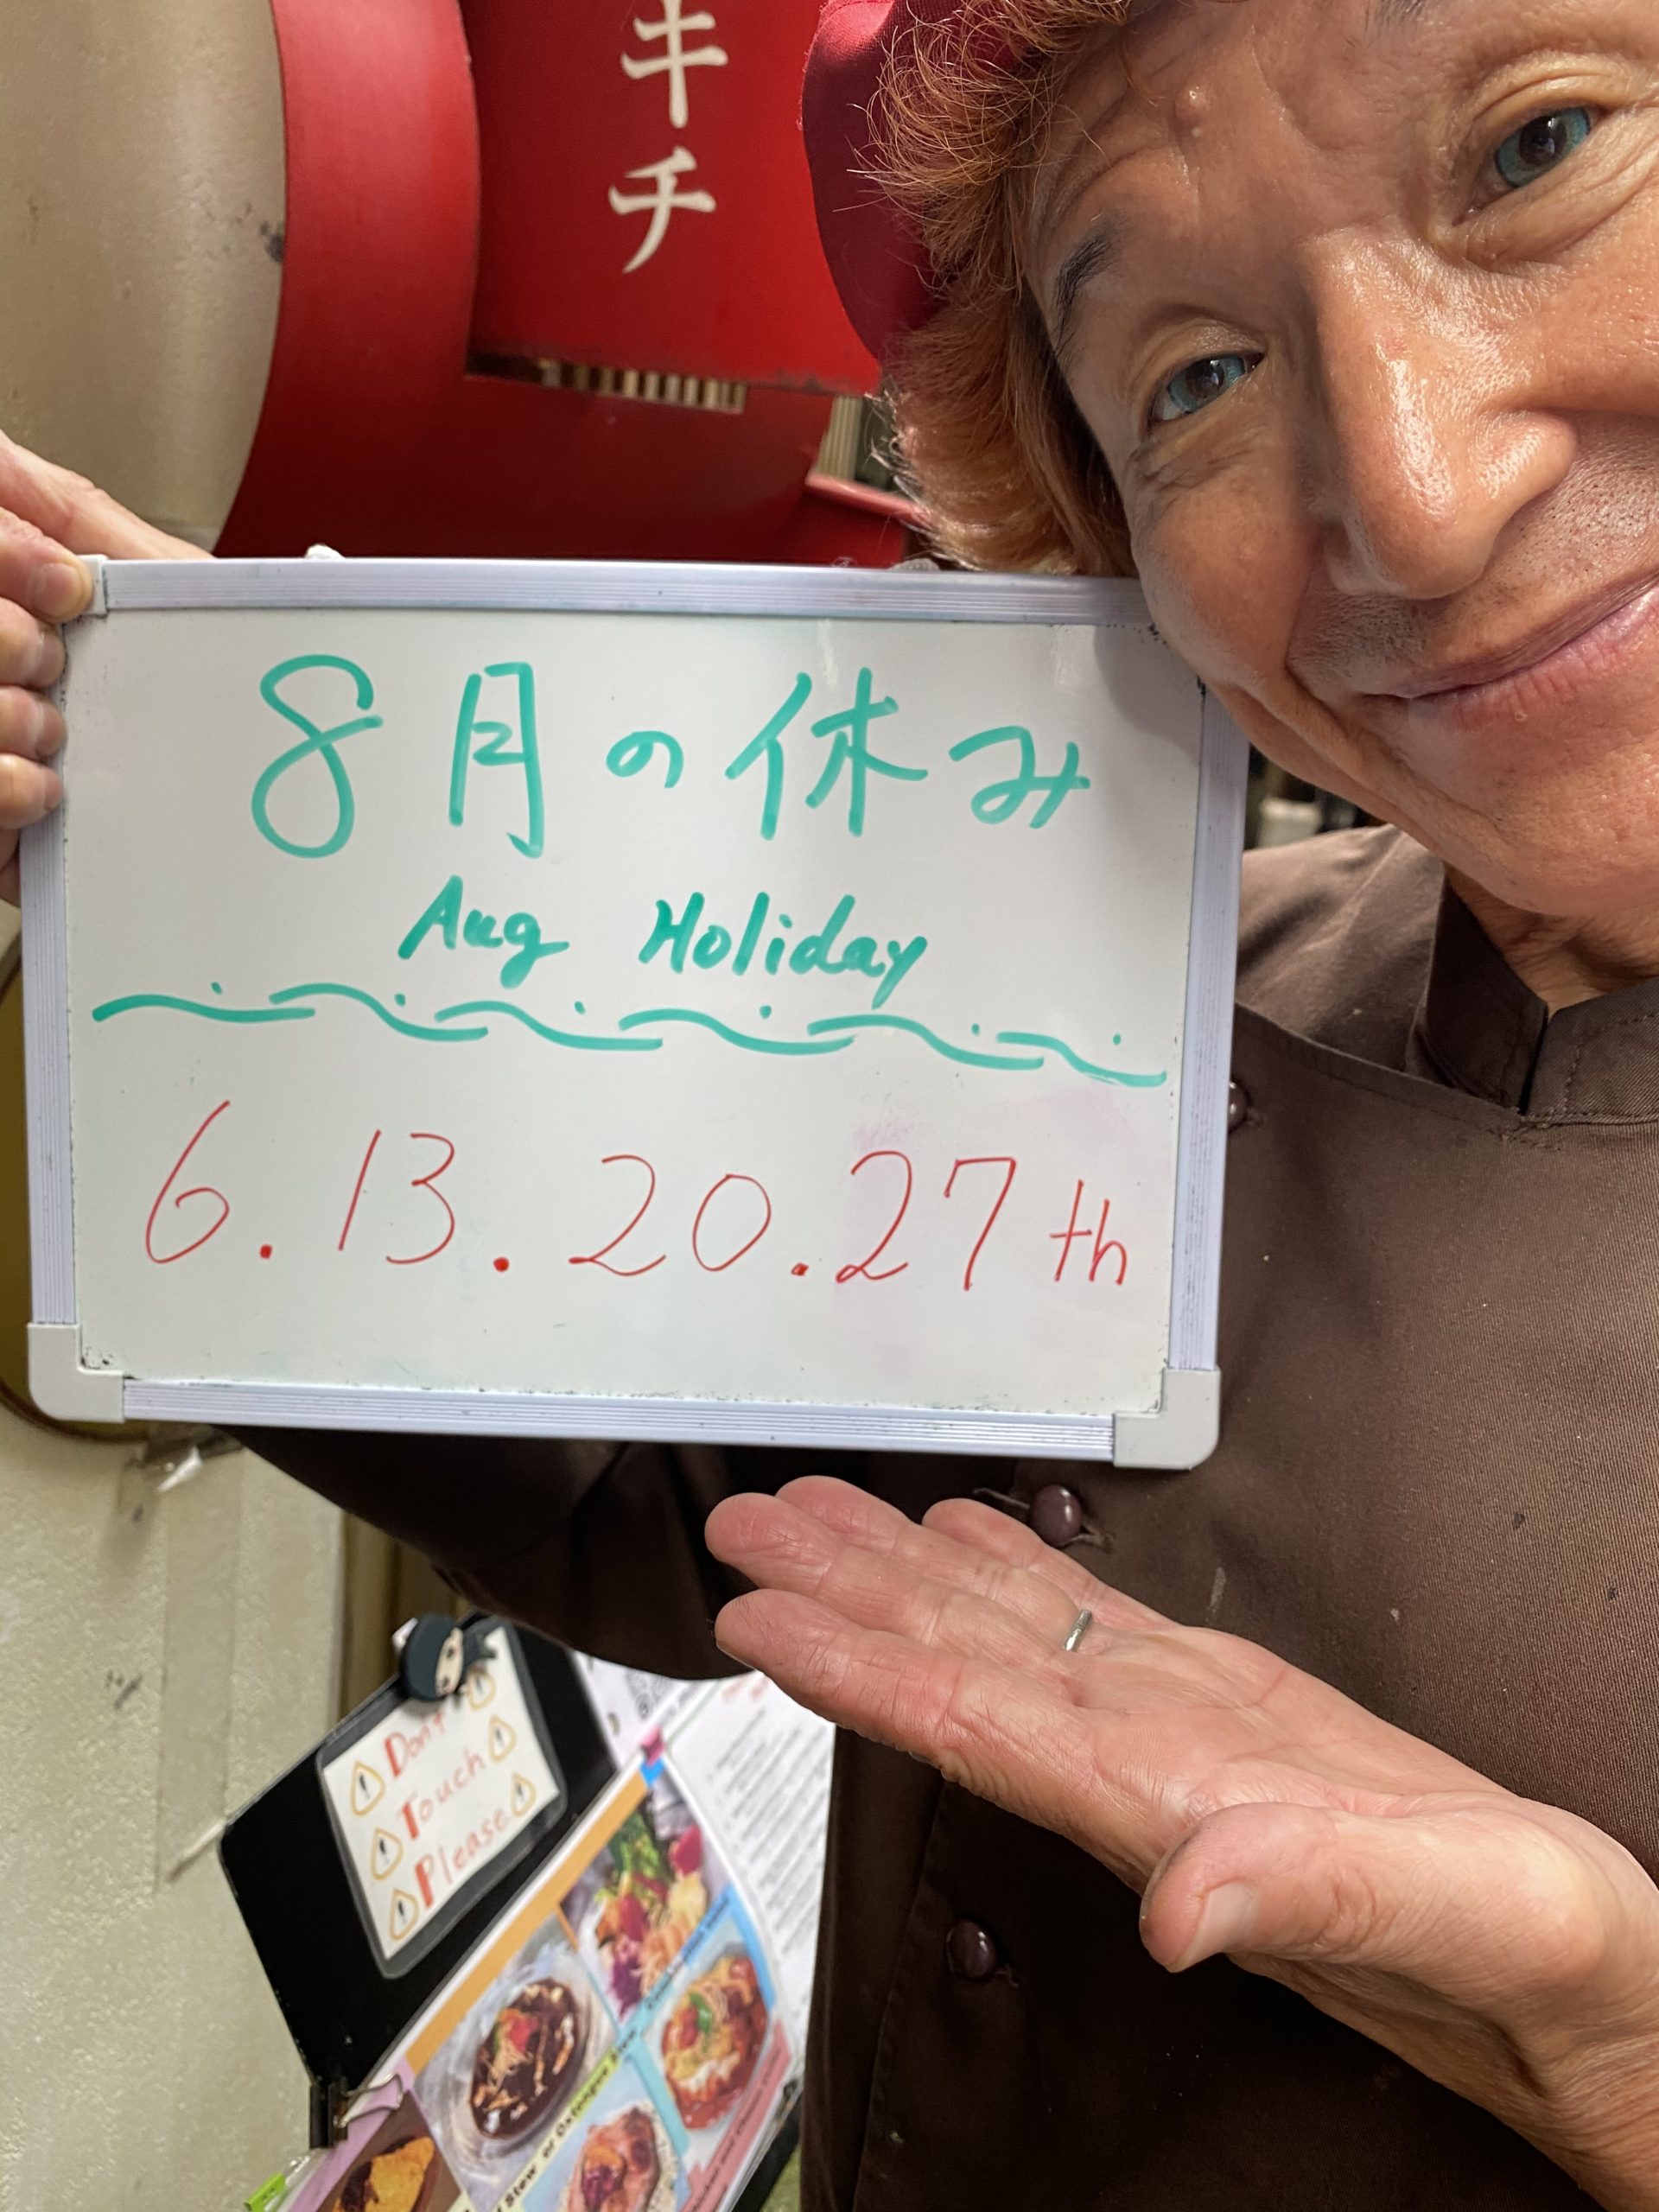 キチ
8月の休み
Aug Holiday
6.13.20.27th
Don't
Touch
Please
Stew or Oxtongue Stew